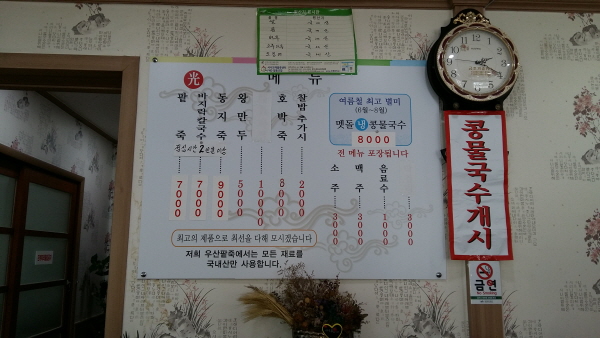 메뉴
光
팥죽
7000
바지락칼국수
7000
동지죽
9000
왕만두
5000
호박죽
찰밥 추가시
2000
여름철 최고 별미
(6월~8월)
맷돌 냉 콩물국수
8000
전 메뉴 포장됩니다
소주
3000
맥주
3000
음료수
1000
3000
최고의 제품으로 최선을 다해 모시겠습니다
저희 우산팥죽에서는 모든 재료를
국내산만 사용합니다.
콩물국수개시
금연
No Smoking